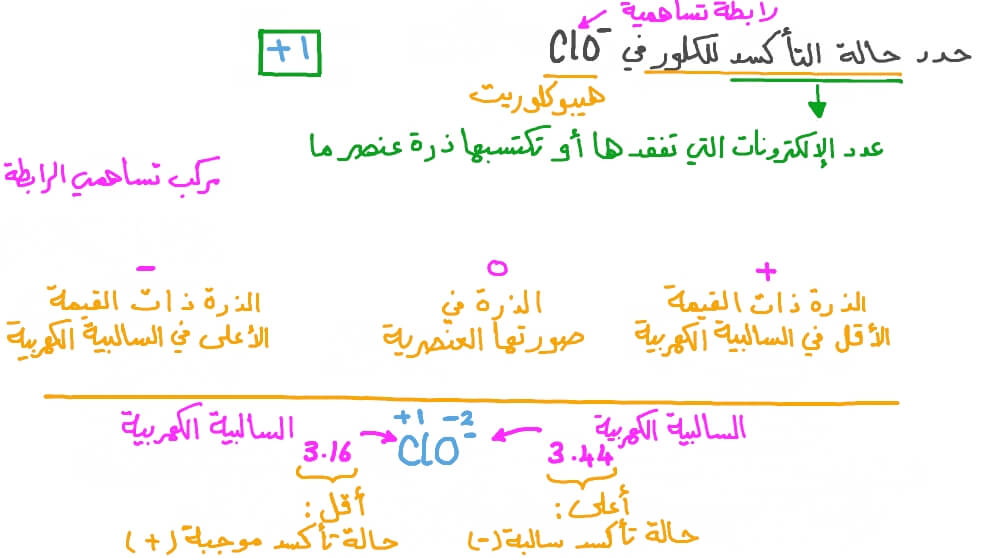 رابطة تساهمية
حدد حالة التأكسد للكلور في ClO⁻
+1
هيبوكلوريت
عدد الإلكترونات التي تفقدها أو تكتسبها ذرة عنصر ما
مركب تساهمي الرابطة
+
الذرة ذات القيمة
الأقل في السالبية الكهربية
0
الذرة في
صورتها العنصرية
−
الذرة ذات القيمة
الأعلى في السالبية الكهربية
+1 −2
ClO⁻
السالبية الكهربية
3.44
أعلى:
حالة تأكسد سالبة (-)
السالبية الكهربية
3.16
أقل:
حالة تأكسد موجبة (+)